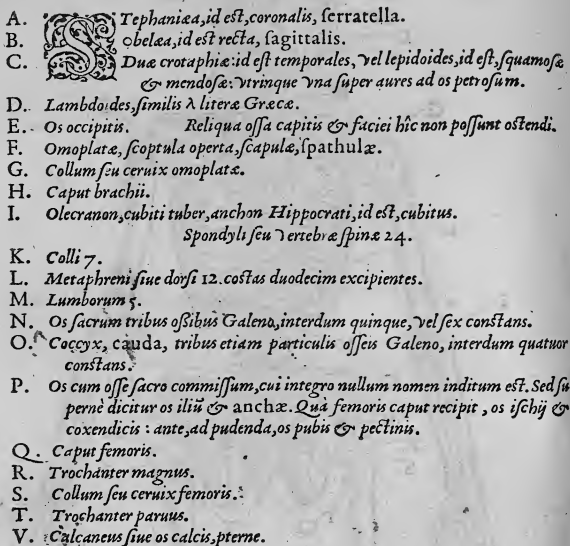 A. STephaniæa,id est,coronalis, serratella.
B. obelæa,id est recta, sagittalis.
C. Duæ crotaphiæ:id est temporales, vel lepidoides,id est,squamosæ
& mendosæ:vtrinque vna super aures ad os petrosum.
D. Lambdoides,similis λ literæ Græcæ.
E. Os occipitis. Reliqua ossa capitis & faciei hîc non possunt ostendi.
F. Omoplatæ, scoptula operta,scapulæ,spathulæ.
G. Collum seu ceruix omoplatæ.
H. Caput brachii.
I. Olecranon,cubiti tuber,anchon Hippocrati,id est,cubitus.
Spondyli seu vertebræ spinæ 24.
K. Colli 7.
L. Metaphreni siue dorsi 12.costas duodecim excipientes.
M. Lumborum 5.
N. Os sacrum tribus ossibus Galeno,interdum quinque,vel sex constans.
O. Coccyx, cauda, tribus etiam particulis osseis Galeno, interdum quatuor
constans.
P. Os cum osse sacro commissum,cui integro nullum nomen inditum est. Sed su
pernè dicitur os iliũ & anchæ. Quà femoris caput recipit, os ischij &
coxendicis : ante,ad pudenda,os pubis & pectinis.
Q. Caput femoris.
R. Trochanter magnus.
S. Collum seu ceruix femoris.
T. Trochanter paruus.
V. Calcaneus siue os calcis,pterne.